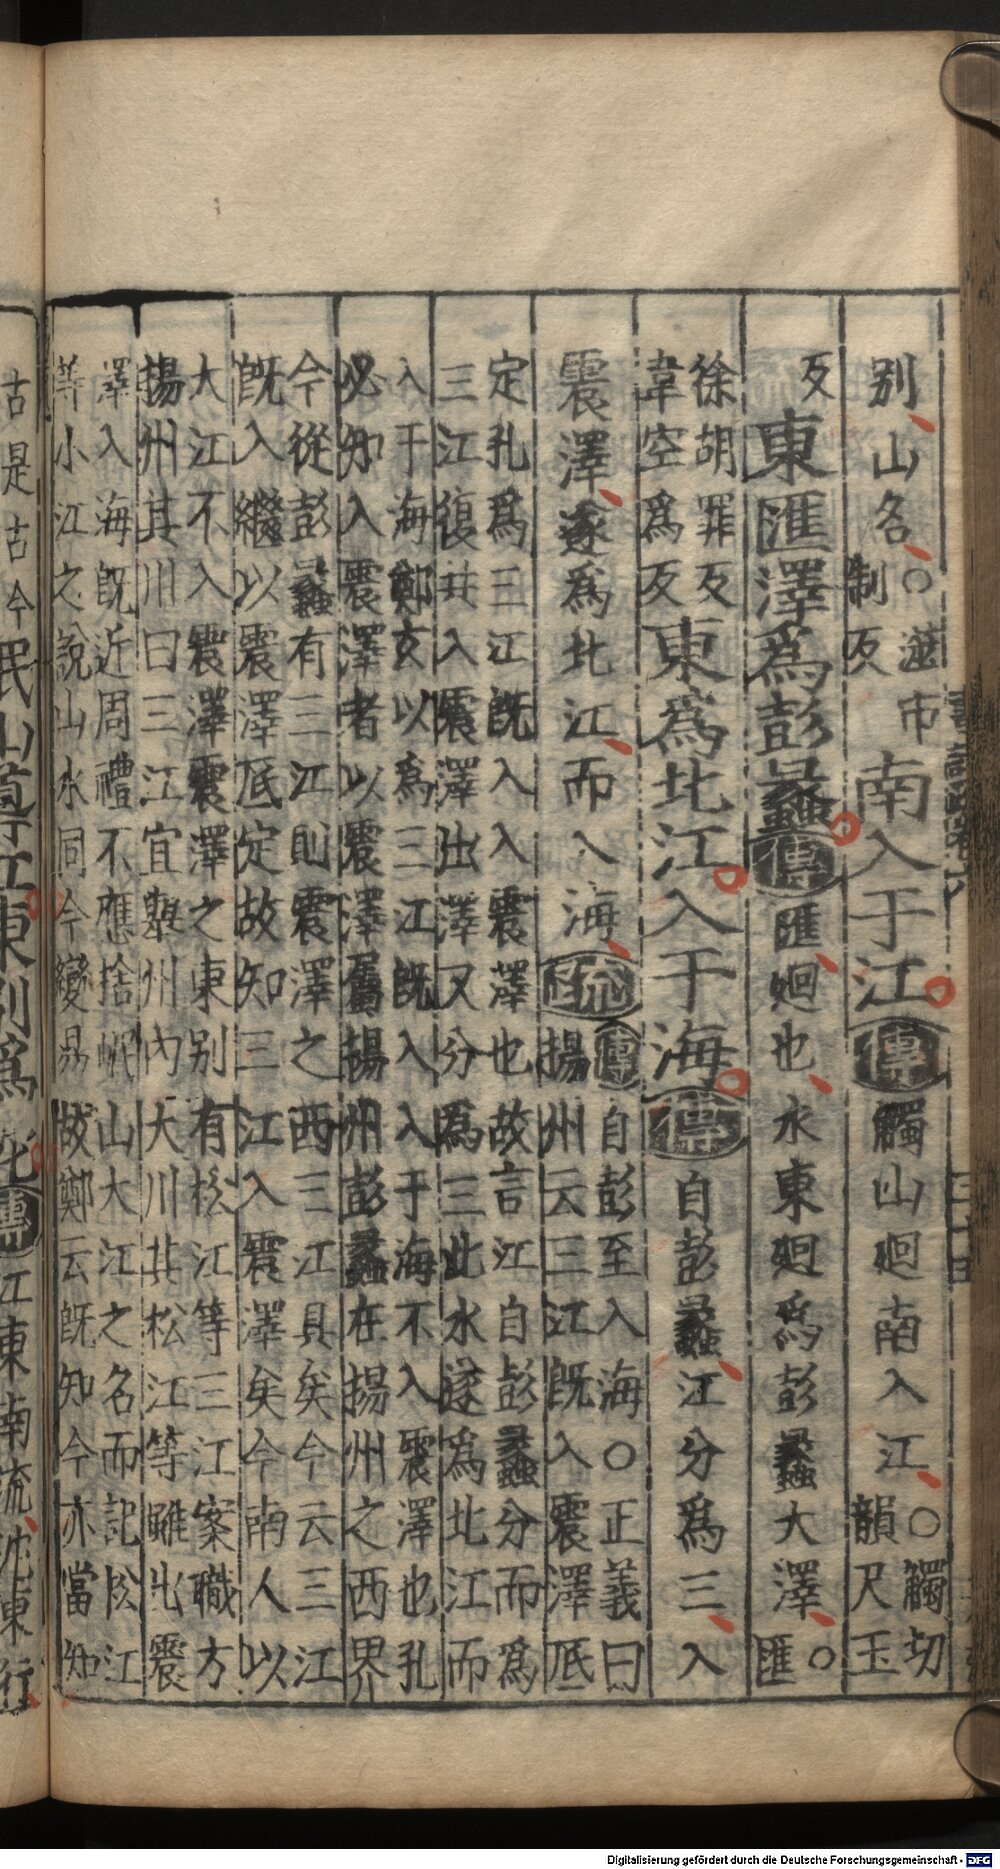 别山名○
澨市
制反
南入于江
傳
觸山廻南入江○
觸切
韻尺玉
反
東匯澤爲彭蠡
傳
匯廻也水東廻爲彭蠡大澤
○
匯
徐胡罪反
韋空爲反
東爲北江入于海
傳
自彭蠡江分爲三入
震澤遂爲北江而入海
疏
傳自彭至入海○正義曰
揚州云三江既入震澤厎
定孔爲三江既入入震澤也故言江自彭蠡分而爲
三江復共入震澤出澤又分爲三此水遂爲北江而
入于海鄭玄以爲三江既入入于海不入震澤也孔
必知入震澤者以震澤屬揚州彭蠡在揚州之西界
今從彭蠡有三江則震澤之西三江具矣今云三江
既入繼以震澤厎定故知三江入震澤矣今南人以
大江不入震澤震澤之東别有松江等三江案職方
揚州其川曰三江宜舉州內大川其松江等雖出震
澤入海既近周禮不應捨岷山大江之名而記松江
等小江之說山水同今變易故鄭云既知今亦當知
古是古今
岷山導江東别爲沱
傳
江東南流沱東行
Digitalisierung gefördert durch die Deutsche Forschungsgemeinschaft - DFG